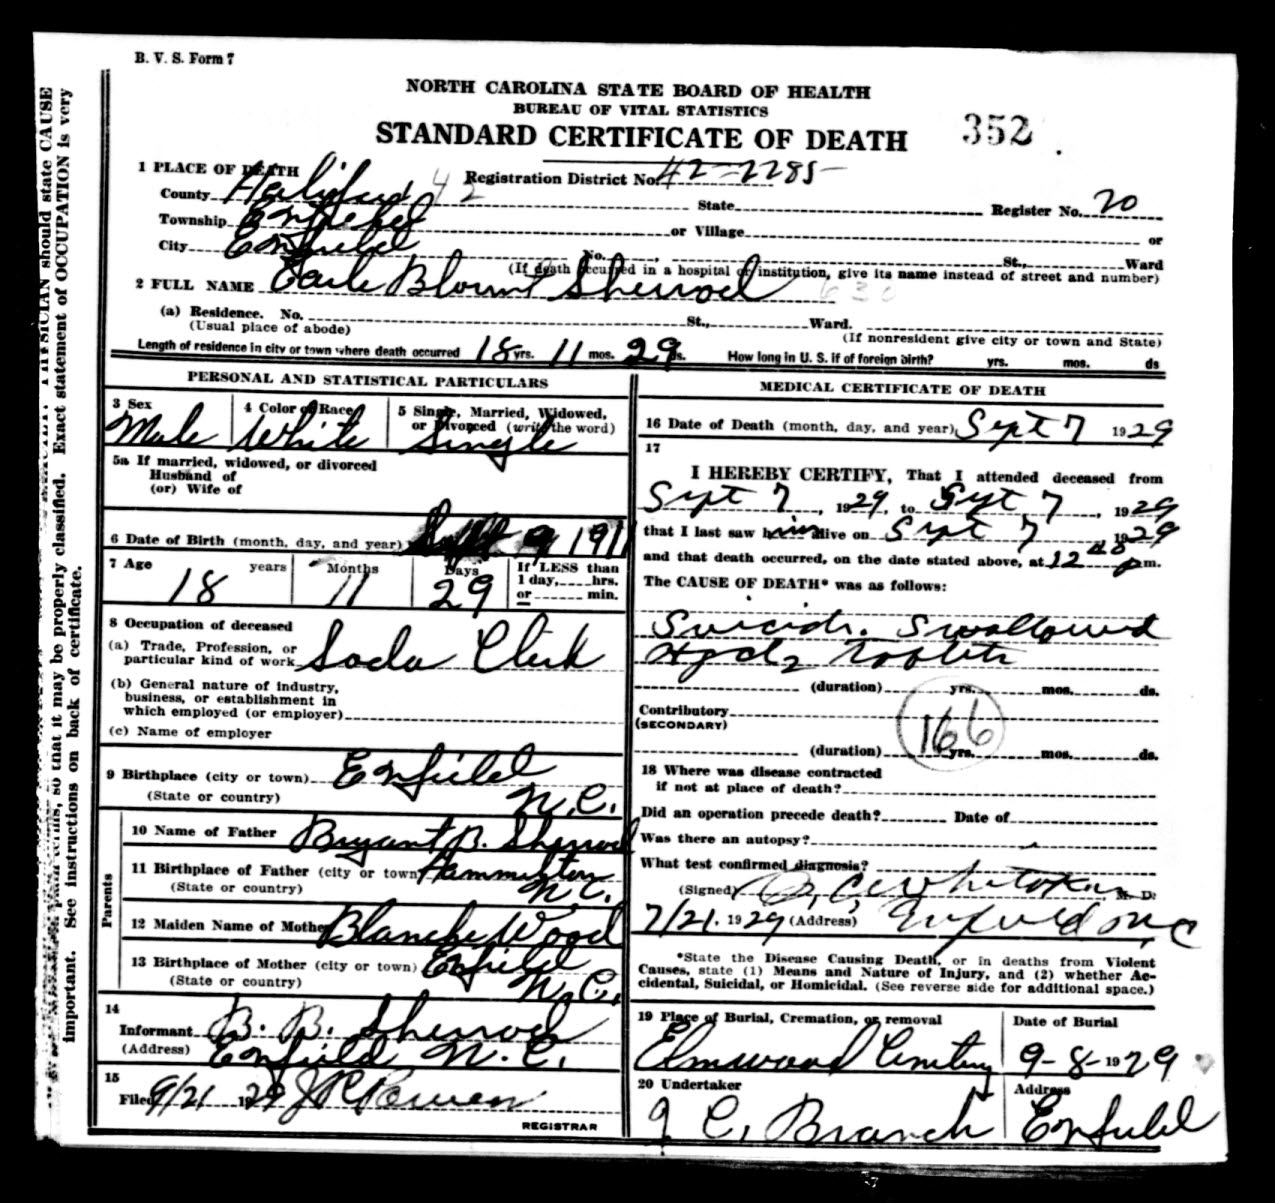 B. V. S. Form 7
NORTH CAROLINA STATE BOARD OF HEALTH
BUREAU OF VITAL STATISTICS
STANDARD CERTIFICATE OF DEATH
352
1 PLACE OF DEATH
Registration District No. 42-2285
County Halifax 42 State Register No. 20
Township Enfield or Village or
City Enfield No. St., Ward
(If death occurred in a hospital or institution, give its name instead of street and number)
2 FULL NAME Earle Blount Sherrod
(a) Residence. No. St., Ward.
(Usual place of abode) (If nonresident give city or town and State)
Length of residence in city or town where death occurred 18 yrs. 11 mos. 29 ds. How long in U. S. if of foreign birth? yrs. mos. ds
PERSONAL AND STATISTICAL PARTICULARS
3 Sex Male
4 Color or Race White
5 Single, Married, Widowed, or Divorced (write the word) Single
5a If married, widowed, or divorced
Husband of
(or) Wife of
6 Date of Birth (month, day, and year) Sept 9 1911
7 Age 18 years 11 Months 29 Days
If LESS than
1 day, hrs.
or min.
8 Occupation of deceased
(a) Trade, Profession, or
particular kind of work Soda Clerk
(b) General nature of industry,
business, or establishment in
which employed (or employer)
(c) Name of employer
9 Birthplace (city or town) Enfield
(State or country) N.C.
Parents
10 Name of Father Bryant B. Sherrod
11 Birthplace of Father (city or town)
(State or country) N.C.
12 Maiden Name of Mother Blanche Wood
13 Birthplace of Mother (city or town) Enfield
(State or country) N.C.
14
Informant B. B. Sherrod
(Address) Enfield N.C.
15
Filed 9/21 1929
REGISTRAR
MEDICAL CERTIFICATE OF DEATH
16 Date of Death (month, day, and year) Sept 7 1929
17
I HEREBY CERTIFY, That I attended deceased from
Sept 7, 1929, to Sept 7, 1929
that I last saw him alive on Sept 7 1929
and that death occurred, on the date stated above, at 12 p m.
The CAUSE OF DEATH* was as follows:
Suicide. Swallowed
(duration) yrs. mos. ds.
Contributory
(SECONDARY)
166
(duration) yrs. mos. ds.
18 Where was disease contracted
if not at place of death?
Did an operation precede death? Date of
Was there an autopsy?
What test confirmed diagnosis?
(Signed) M. D.
7/21. 1929 (Address) Enfield N C
*State the Disease Causing Death, or in deaths from Violent
Causes, state (1) Means and Nature of Injury, and (2) whether Ac-
cidental, Suicidal, or Homicidal. (See reverse side for additional space.)
19 Place of Burial, Cremation, or removal
Elmwood Cemetery
Date of Burial
9-8-1929
20 Undertaker
J C. Branch
Address
Enfield
should state CAUSE
so that it may be properly classified. Exact statement of OCCUPATION is very
important. See instructions on back of certificate.